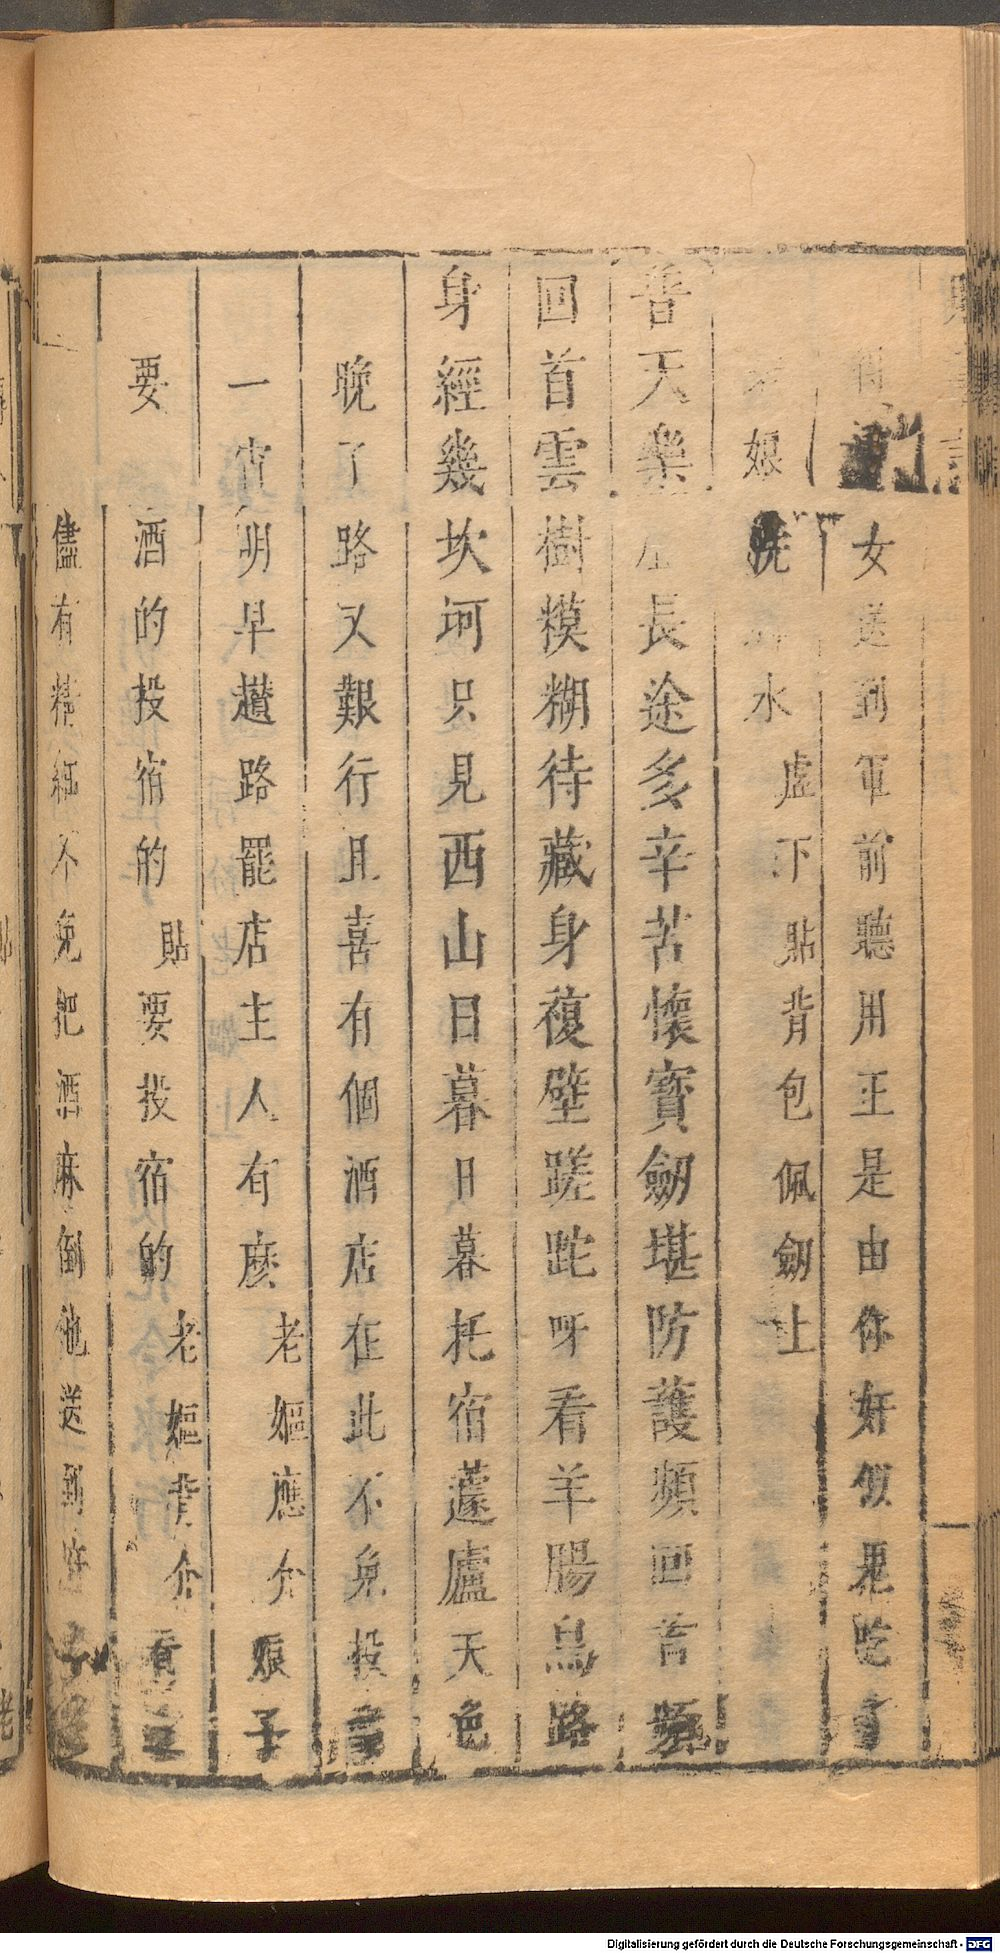 女送到軍前聽用正是由你奸似鬼吃了
娘洗水虛下貼背包佩劒上
普天樂長途多辛苦懷寶劒堪防護頻回首頻
回首雲樹模糊待藏身複壁蹉跎呀看羊腸鳥路
身經幾坎坷只見西山日暮日暮托宿蘧廬天色
晚了路又艱行且喜有個酒店在此不免投
一宵明早趲路罷店主人有麽老嫗應介娘子
要酒的投宿的貼要投宿的老嫗背介看
儘有精細不免把酒麻倒他送到
Digitalisierung gefördert durch die Deutsche Forschungsgemeinschaft - DFG